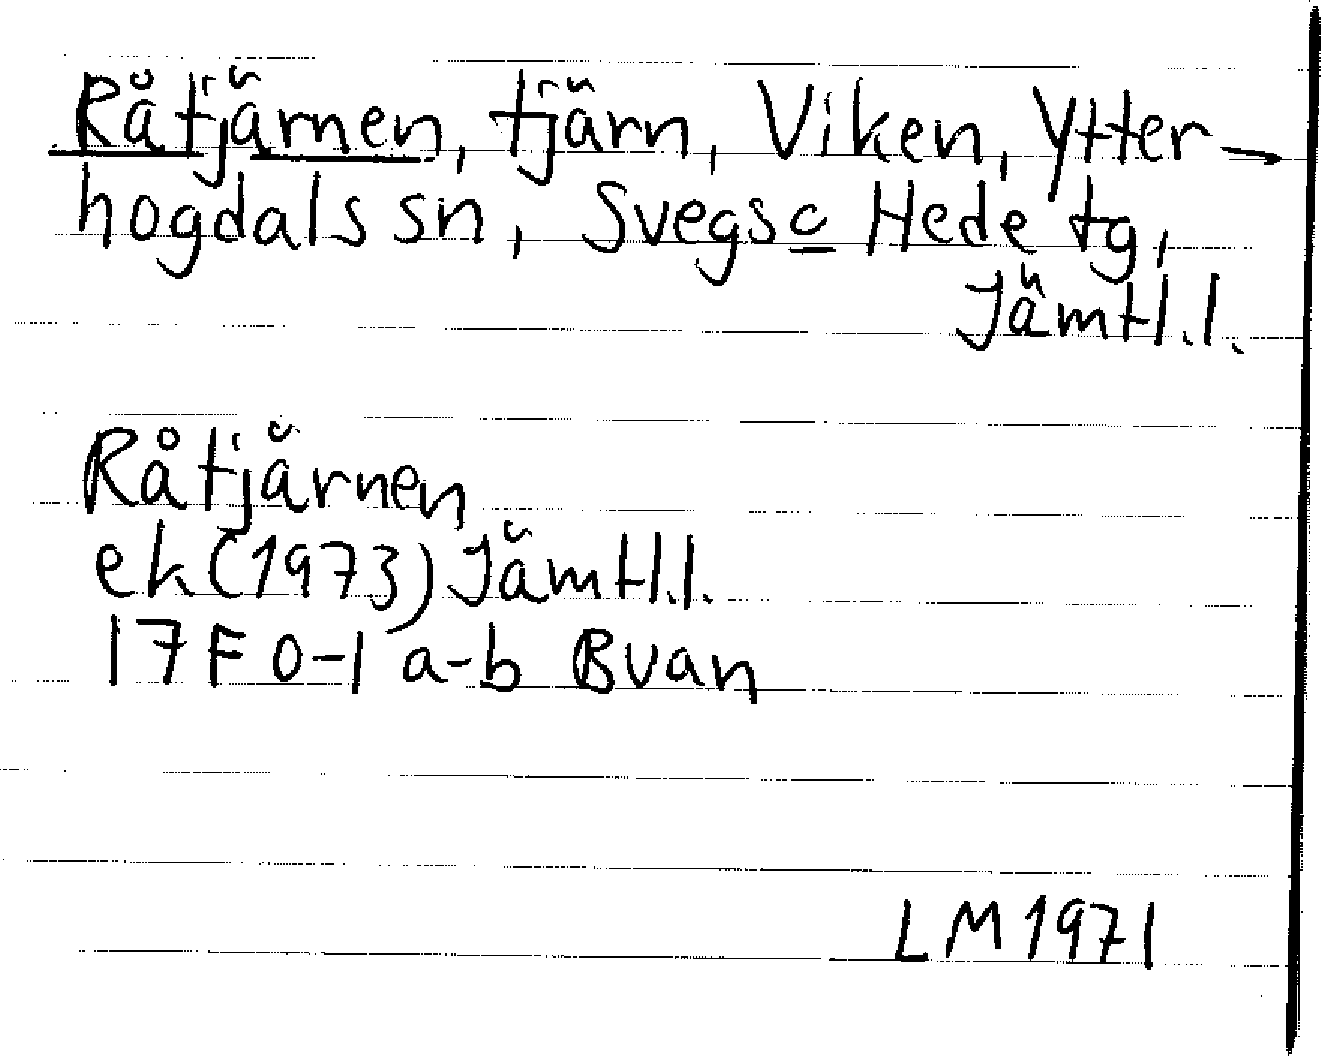 Råtjärnen, tjärn, Viken, Ytter-
hogdals sn, Svegs o Hede tg,
Jämtl.l.
Råtjärnen
ek (1973) Jämtl.l.
17F 0-1 a-b Buan
LM 1971